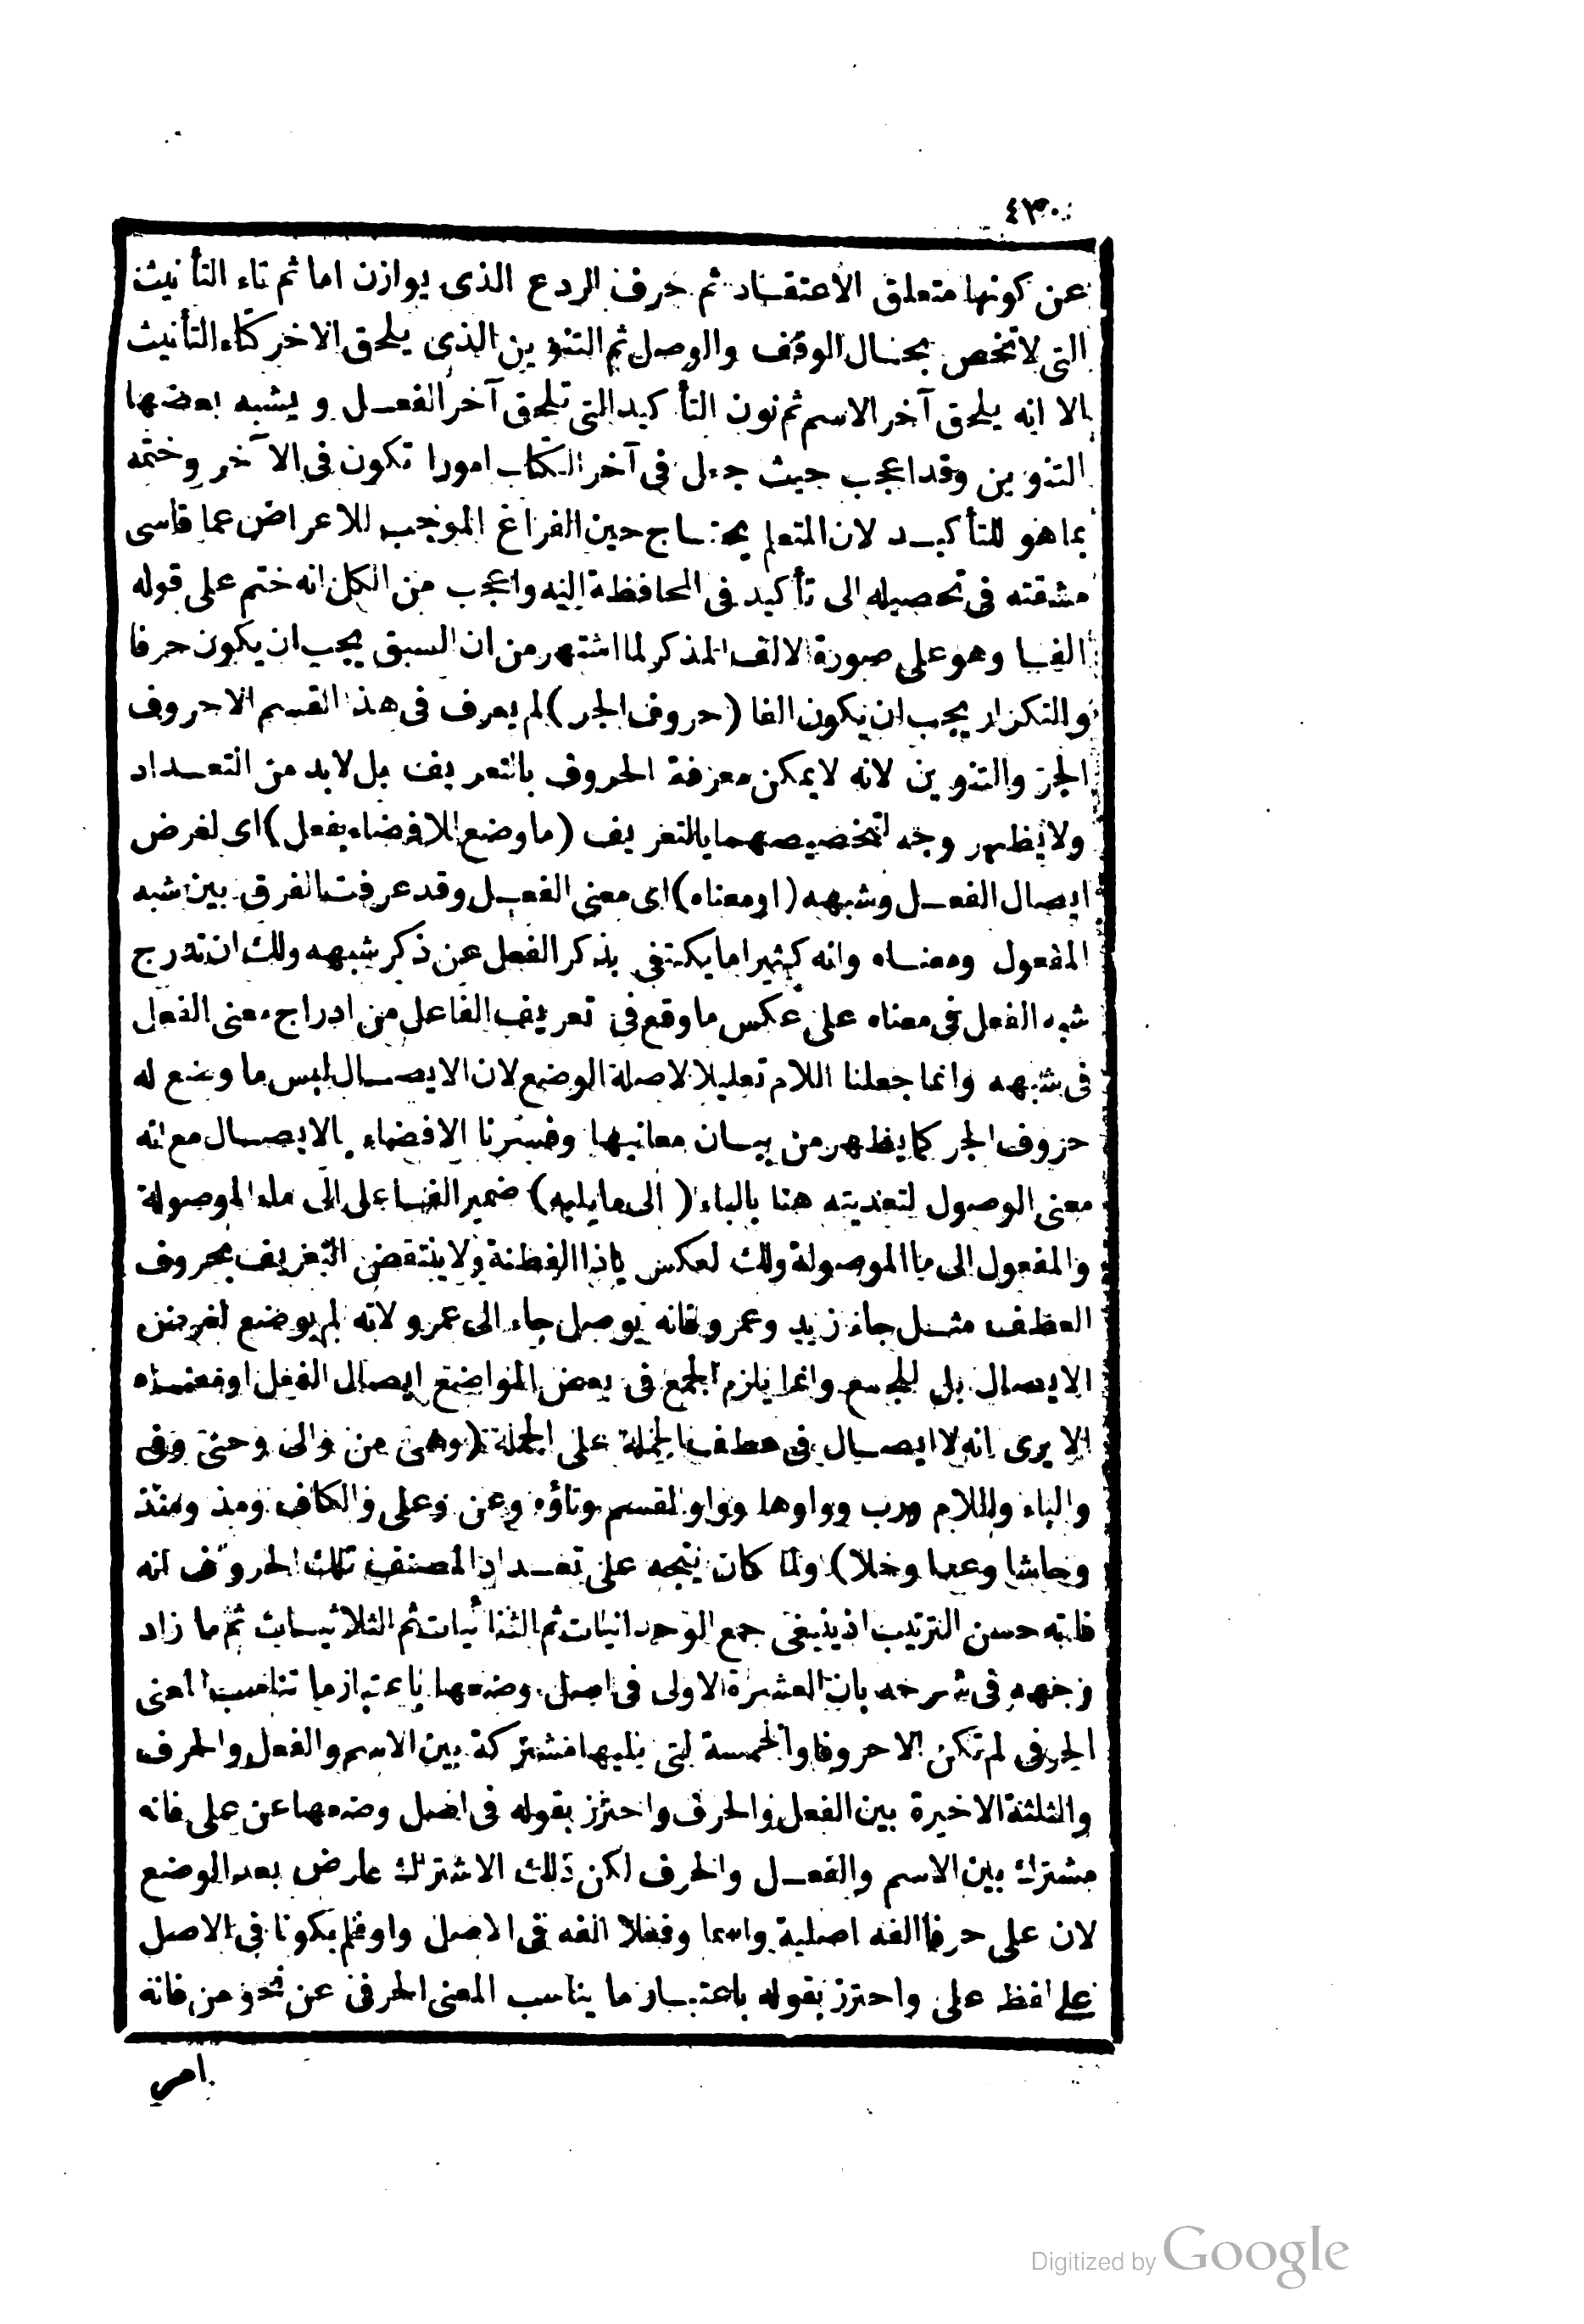 ٤٣٠
عن كونها متعلق الاعتقاد ثم حرف الردع الذى يوازن اما ثم تاء التأنيث
التى لا تخص بحال الوقف والوصل ثم التنوين الذى يلحق الاخر كتاء التأنيث
الا انه يلحق آخر الاسم ثم نون التأكيد التى تلحق آخر الفعل ويشبه بعضها
التنوين وقد اعجب حيث جعل فى آخر الكتاب امورا تكون فى الآخر وختمه
بما هو للتأكيد لان المتعلم يحتاج حين الفراغ الموجب للاعراض عما قاسى
مشقته فى تحصيله الى تأكيد فى المحافظة اليه واعجب من الكل انه ختم على قوله
الفا وهو على صورة الالف المذكر لما اشتهر من ان السبق يجب ان يكون حرفا
والتكرار يجب ان يكون الفا (حروف الجر) لم يعرف فى هذا القسم الا حروف
الجر والتنوين لانه لا يمكن معرفة الحروف بالتعريف بل لابد من التعداد
ولا يظهر وجه لتخصيصهما بالتعريف (ما وضع للافضاء بفعل) اى لغرض
ايصال الفعل وشبهه (او معناه) اى معنى الفعل وقد عرفت الفرق بين شبه
المفعول ومعناه وانه كثيرا ما يكتفى بذكر الفعل عن ذكر شبهه ولك ان تدرج
شبه الفعل فى معناه على عكس ما وقع فى تعريف الفاعل من ادراج معنى الفعل
فى شبهه وانما جعلنا اللام تعليلا لاصلة الوضع لان الايصال ليس ما وضع له
حروف الجر كما يظهر من بيان معانيها وفسرنا الافضاء بالايصال مع انه
معنى الوصول لتعديته هنا بالباء (الى ما يليه) ضمير الفاعل الى ماء الموصولة
والمفعول الى ما الموصولة ولك لعكس ياذا الفطنة ولا ينتقض التعريف بحروف
العطف مثل جاء زيد وعمرو فانه يوصل جاء الى عمرو لانه لم يوضع لغرض
الايصال بل للجمع وانما يلزم الجمع فى بعض المواضع ايصال الفعل او معناه
الا يرى انه لا ايصال فى عطف الجملة على الجملة (وهى من والى وحتى وفى
والباء واللام ورب وواوها وواو القسم وتاؤه وعن وعلى والكاف ومذ ومنذ
وحاشا وعدا وخلا) ولما كان يتجه على تعداد المصنف تلك الحروف انه
فاته حسن الترتيب اذ ينبغى جمع الوحدانيات ثم الثنائيات ثم الثلاثيات ثم ما زاد
وجهه فى شرحه بان العشرة الاولى فى اصل وضعها باعتبار ما تناسب المعنى
الحرفى لم تكن الا حروفا والخمسة لتى يليها مشتركة بين الاسم والفعل والحرف
والثلثة الاخيرة بين الفعل والحرف واحترز بقوله فى اصل وضعها عن على فانه
مشترك بين الاسم والفعل والحرف لكن ذلك الاشتراك عارض بعد الوضع
لان على حرفا الفه اصلية واسما وفعلا الفه فى الاصل واو فلم يكونا فى الاصل
على لفظ على واحترز بقوله باعتبار ما يناسب المعنى الحرفى عن نحو من فانه
امر
Digitized by Google